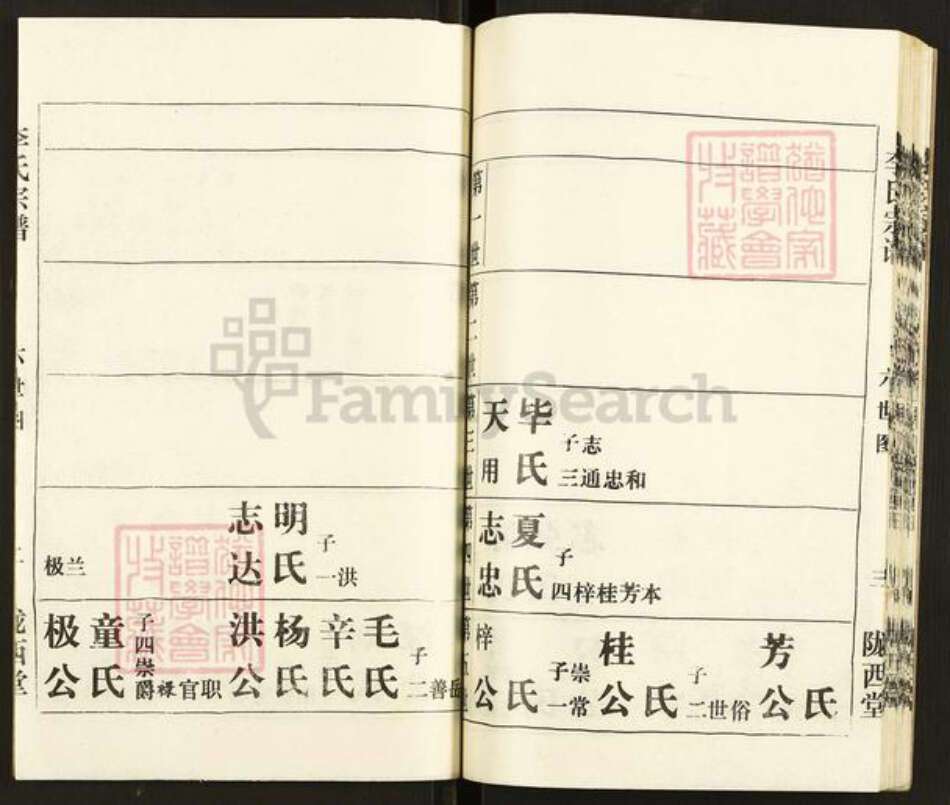 李氏宗谱
六世图
三
陇西堂
第一世
第二世
第三世
天用
毕氏
子三
志通忠和
第四世
志忠
夏氏
子四
梓桂芳本
第五世
梓公
氏
子一
崇常
桂公
氏
子二
世俗
芳公
氏
李氏宗谱
六世图
陇西堂
志达
明氏
子一
洪
极兰
极公
童氏
子四
崇爵禄官职
洪公
杨氏
辛氏
毛氏
子二
善岳
FamilySearch